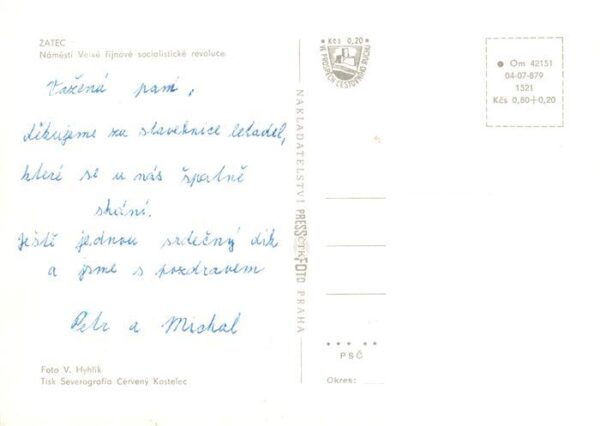 ŽATEC
Náměstí Velké říjnové socialistické revoluce
Vážená paní,
děkujeme za stavebnice letadel,
které se u nás špatně
shání.
Ještě jednou srdečný dík
a jsme s pozdravem
Petr a Michal
Foto V. Hyhlík
Tisk Severografia Červený Kostelec
Kčs 0,20
VE PROSPĚCH CESTOVNÍHO RUCHU
NAKLADATELSTVÍ PRESSFOTO PRAHA
Om 42151
04-07-879
1521
Kčs 0,80+0,20
PSČ
Okres: